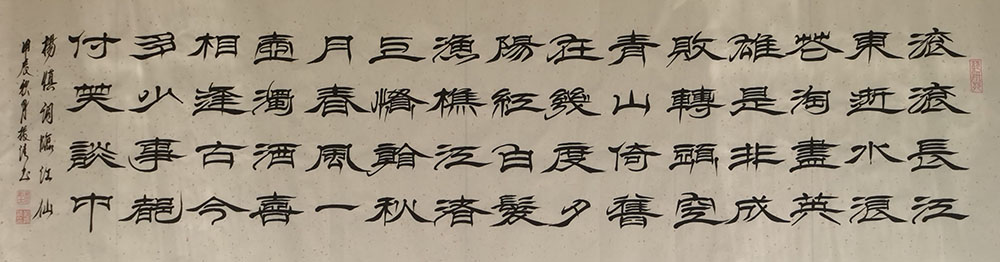 滚滚長江
東逝水浪
花淘盡英
雄是非成
敗轉頭空
青山倚舊
在幾度夕
陽紅白髮
漁樵江渚
上慣看秋
月春風一
壺濁酒喜
相逢古今
多少事都
付笑談中
楊慎詞臨江仙
甲辰秋月